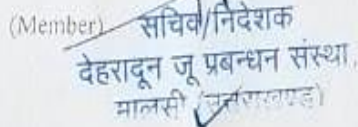 (Member) सचिव/निदेशक
देहरादून जू प्रबन्धन संस्था,
मालसी (उत्तराखण्ड)